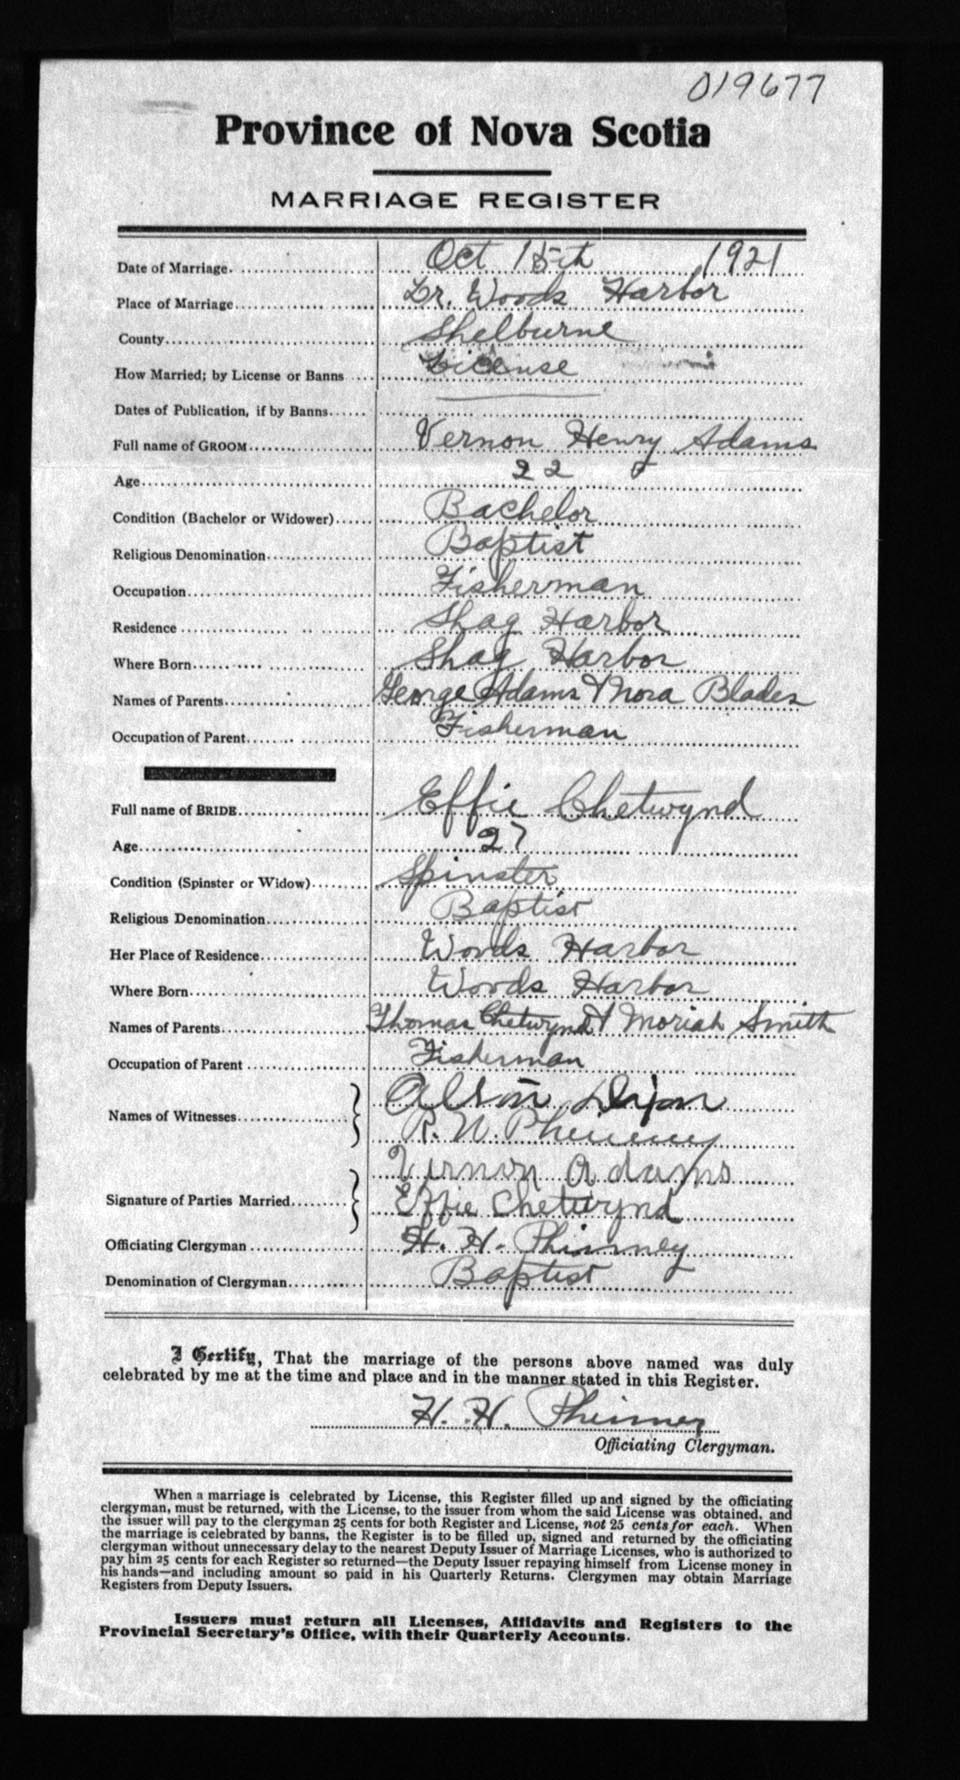 019677
Province of Nova Scotia
MARRIAGE REGISTER
Date of Marriage. Oct 15th 1921
Place of Marriage Lr. Woods Harbor
County Shelburne
How Married; by License or Banns License
Dates of Publication, if by Banns
Full name of GROOM Vernon Henry Adams
Age 22
Condition (Bachelor or Widower) Bachelor
Religious Denomination Baptist
Occupation Fisherman
Residence Shag Harbor
Where Born Shag Harbor
Names of Parents George Adams & Nora Blades
Occupation of Parent Fisherman
Full name of BRIDE Effie Chetwynd
Age 27
Condition (Spinster or Widow) Spinster
Religious Denomination Baptist
Her Place of Residence Woods Harbor
Where Born Woods Harbor
Names of Parents Thomas Chetwynd & Moriah Smith
Occupation of Parent Fisherman
Names of Witnesses Alson Dixon
R. W. Phinney
Vernon Adams
Signature of Parties Married Effie Chetwynd
Officiating Clergyman H. H. Phinney
Denomination of Clergyman Baptist
I Certify, That the marriage of the persons above named was duly
celebrated by me at the time and place and in the manner stated in this Register.
H. H. Phinney
Officiating Clergyman.
When a marriage is celebrated by License, this Register filled up and signed by the officiating
clergyman, must be returned, with the License, to the issuer from whom the said License was obtained, and
the issuer will pay to the clergyman 25 cents for both Register and License, not 25 cents for each. When
the marriage is celebrated by banns, the Register is to be filled up, signed and returned by the officiating
clergyman without unnecessary delay to the nearest Deputy Issuer of Marriage Licenses, who is authorized to
pay him 25 cents for each Register so returned—the Deputy Issuer repaying himself from License money in
his hands—and including amount so paid in his Quarterly Returns. Clergymen may obtain Marriage
Registers from Deputy Issuers.
Issuers must return all Licenses, Affidavits and Registers to the
Provincial Secretary's Office, with their Quarterly Accounts.